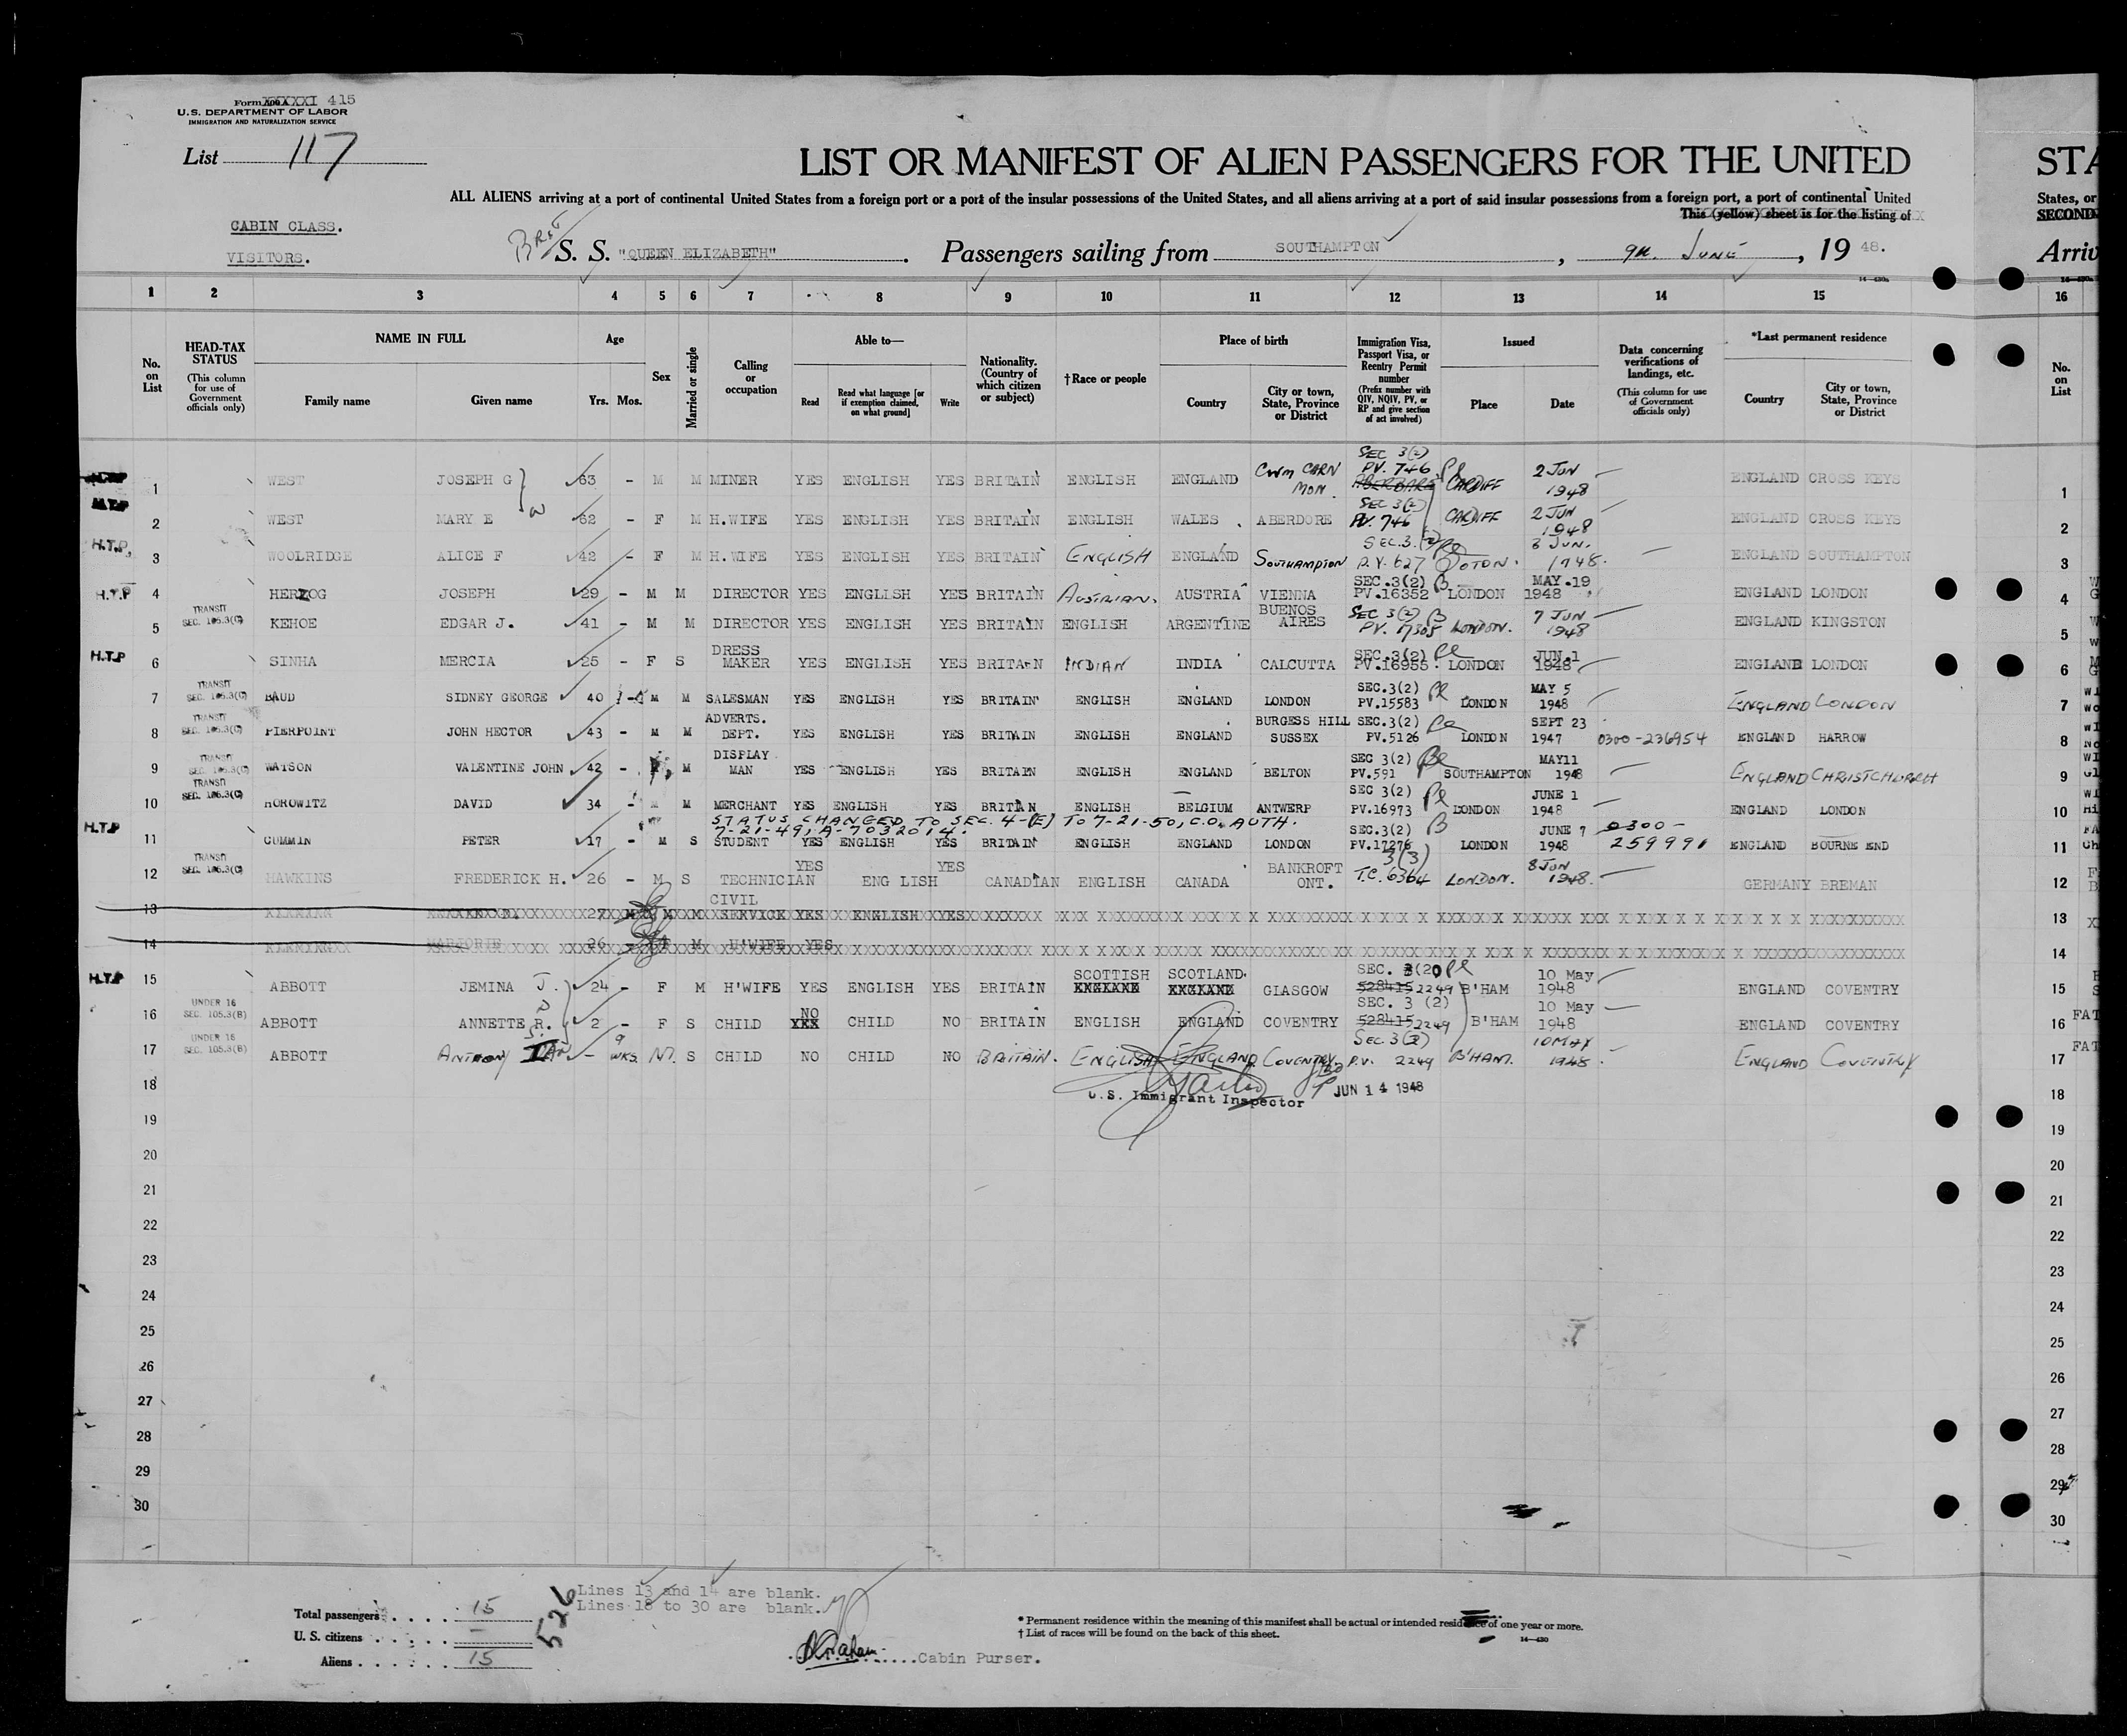 Form 415
U.S. DEPARTMENT OF LABOR
IMMIGRATION AND NATURALIZATION SERVICE
List 117
LIST OR MANIFEST OF ALIEN PASSENGERS FOR THE UNITED STA
ALL ALIENS arriving at a port of continental United States from a foreign port or a port of the insular possessions of the United States, and all aliens arriving at a port of said insular possessions from a foreign port, a port of continental United States, or
This (yellow) sheet is for the listing of SECOND
CABIN CLASS.
VISITORS.
S. S. "QUEEN ELIZABETH". Passengers sailing from SOUTHAMPTON, 9th JUNE, 1948. Arriv
1 2 3 4 5 6 7 8 9 10 11 12 13 14 15 16
No. on List
HEAD-TAX STATUS (This column for use of Government officials only)
NAME IN FULL
Family name Given name
Age Yrs. Mos.
Sex
Married or single
Calling or occupation
Able to—
Read Read what language [or if exemption claimed, on what ground] Write
Nationality. (Country of which citizen or subject)
†Race or people
Place of birth
Country City or town, State, Province or District
Immigration Visa, Passport Visa, or Reentry Permit number (Prefix number with QIV, NQIV, PV, or RP and give section of act involved)
Issued
Place Date
Data concerning verifications of landings, etc. (This column for use of Government officials only)
*Last permanent residence
Country City or town, State, Province or District
No. on List
1 WEST JOSEPH G 63 - M M MINER YES ENGLISH YES BRITAIN ENGLISH ENGLAND CWM CARN MON. SEC 3(2) PV. 746 CARDIFF 2 JUN 1948 ENGLAND CROSS KEYS 1
2 WEST MARY E 62 - F M H.WIFE YES ENGLISH YES BRITAIN ENGLISH WALES ABERDORE SEC 3(2) PV. 746 CARDIFF 2 JUN 1948 ENGLAND CROSS KEYS 2
H.T.P. 3 WOOLRIDGE ALICE F 42 - F M H.WIFE YES ENGLISH YES BRITAIN ENGLISH ENGLAND SOUTHAMPTON SEC.3.(2) P.V. 627 SOTON. JUN. 1948. ENGLAND SOUTHAMPTON 3
H.T.P 4 HERZOG JOSEPH 29 - M M DIRECTOR YES ENGLISH YES BRITAIN AUSTRIAN. AUSTRIA VIENNA SEC.3(2) PV.16352 LONDON MAY.19 1948 ENGLAND LONDON 4
5 TRANSIT SEC. 105.3(C) KEHOE EDGAR J. 41 - M M DIRECTOR YES ENGLISH YES BRITAIN ENGLISH ARGENTINE BUENOS AIRES SEC 3(2) PV. 17305 LONDON. 7 JUN 1948 ENGLAND KINGSTON 5
H.T.P 6 SINHA MERCIA 25 - F S DRESS MAKER YES ENGLISH YES BRITAIN INDIAN INDIA CALCUTTA SEC.3(2) PV.16955 LONDON JUN.1 1948 ENGLAND LONDON 6
7 TRANSIT SEC. 105.3(C) BAUD SIDNEY GEORGE 40 - M M SALESMAN YES ENGLISH YES BRITAIN ENGLISH ENGLAND LONDON SEC.3(2) PV.15583 LONDON MAY 5 1948 ENGLAND LONDON 7
8 TRANSIT SEC. 105.3(C) PIERPOINT JOHN HECTOR 43 - M M ADVERTS. DEPT. YES ENGLISH YES BRITAIN ENGLISH ENGLAND BURGESS HILL SUSSEX SEC.3(2) PV.5126 LONDON SEPT 23 1947 0300-236954 ENGLAND HARROW 8
9 TRANSIT SEC. 105.3(C) WATSON VALENTINE JOHN 42 - M DISPLAY MAN YES ENGLISH YES BRITAIN ENGLISH ENGLAND BELTON SEC 3(2) PV.591 SOUTHAMPTON MAY11 1948 ENGLAND CHRISTCHURCH 9
10 TRANSIT SEC. 105.3(C) HOROWITZ DAVID 34 - M M MERCHANT YES ENGLISH YES BRITAN ENGLISH BELGIUM ANTWERP SEC 3(2) PV.16973 LONDON JUNE 1 1948 ENGLAND LONDON 10
STATUS CHANGED TO SEC. 4-(E) TO 7-21-50, C.O. AUTH.
7-21-49, A-7032014.
H.T.P 11 CUMMIN PETER 17 - M S STUDENT YES ENGLISH YES BRITAIN ENGLISH ENGLAND LONDON SEC.3(2) PV.17276 LONDON JUNE 7 1948 0300-259991 ENGLAND BOURNE END 11
12 TRANSIT SEC. 105.3(C) HAWKINS FREDERICK H. 26 - M S TECHNICIAN YES ENGLISH YES CANADIAN ENGLISH CANADA BANKROFT ONT. 3(3) T.C. 6364 LONDON. 8 JUN 1948. GERMANY BREMAN 12
13 27 M M CIVIL SERVICE YES ENGLISH YES 13
14 MARJORIE 26 - F M H'WIFE YES 14
H.T.P 15 ABBOTT JEMINA J. 24 - F M H'WIFE YES ENGLISH YES BRITAIN SCOTTISH SCOTLAND. GLASGOW SEC. 3(2) 528415 2249 B'HAM 10 May 1948 ENGLAND COVENTRY 15
16 UNDER 16 SEC. 105.3(B) ABBOTT ANNETTE R. 2 - F S CHILD NO CHILD NO BRITAIN ENGLISH ENGLAND COVENTRY SEC. 3 (2) 528415 2249 B'HAM 10 May 1948 ENGLAND COVENTRY 16 FAT
17 UNDER 16 SEC. 105.3(B) ABBOTT ANTHONY IAN - 9 WKS. M. S CHILD NO CHILD NO BRITAIN. ENGLISH ENGLAND COVENTRY SEC. 3(2) P.V. 2249 B'HAM. 10 MAY 1948 ENGLAND COVENTRY 17 FAT
18 U.S. Immigrant Inspector JUN 14 1948 18
19 19
20 20
21 21
22 22
23 23
24 24
25 25
26 26
27 27
28 28
29 29
30 30
Lines 13 and 14 are blank.
Lines 18 to 30 are blank.
526
Total passengers . . . . 15
U. S. citizens . . . . —
Aliens . . . . . . 15
Cabin Purser.
* Permanent residence within the meaning of this manifest shall be actual or intended residence of one year or more.
† List of races will be found on the back of this sheet.
14—430